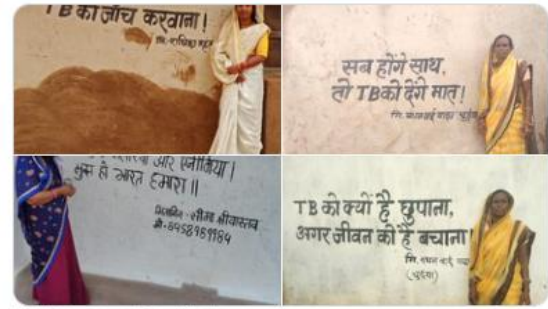 TB की जाँच करवाना!
सब होंगे साथ,
तो TB को देंगे मात!
और एनीमिया।
मुक्त हो भारत हमारा॥
श्रीवास्तव
TB को क्यों है छुपाना,
अगर जीवन को है बचाना!